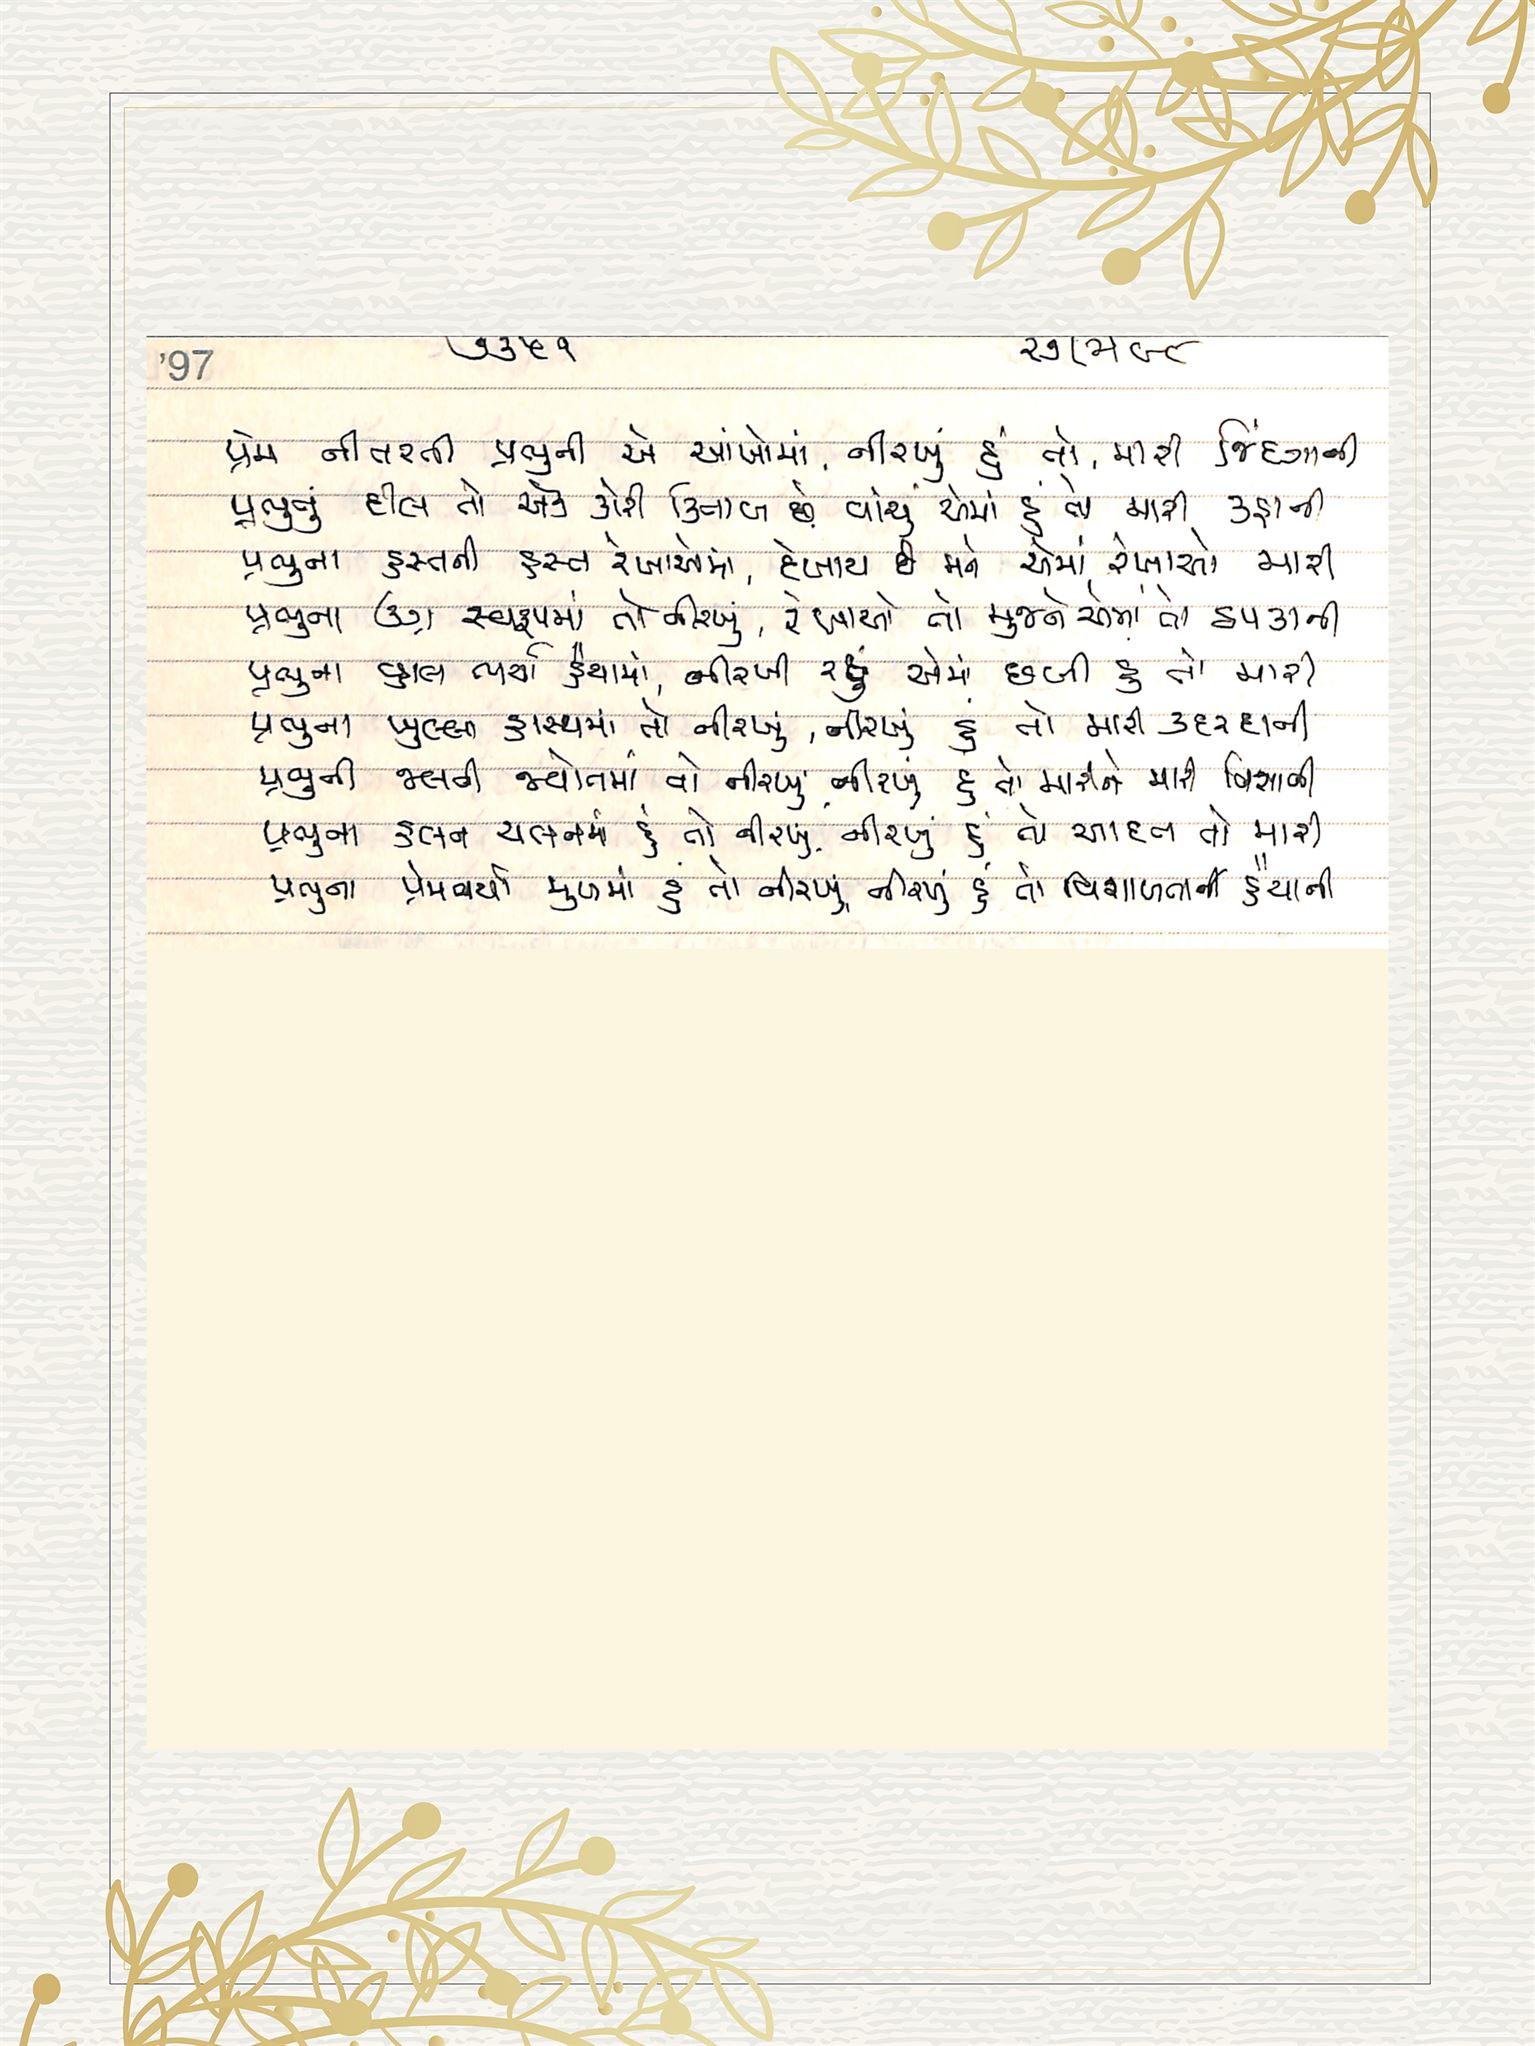 '97
૭૩૫૧
પ્રેમ નીતરતી પ્રભુની એ આંખોમાં, નીરખું હું તો, મારી જિંદગાની
પ્રભુનું દીલ તો એક કોરી કિતાબ છે વાંચું એમાં હું તો મારી કહાની
પ્રભુના હસ્તની હસ્ત રેખાઓમાં, દેખાય છે મને એમાં રેખાઓ મારી
પ્રભુના ઉગ્ર સ્વરૂપમાં તો નીરખું, રેખાઓ તો મુજને એમાં તો ઠપકાની
પ્રભુના વ્હાલ ભર્યા હૈયામાં, નીરખી રહું એમાં છબી હું તો મારી
પ્રભુના ખુલ્લા હાસ્યમાં તો નીરખું, નીરખું હું તો મારી કદરદાની
પ્રભુની જલતી જ્યોતમાં તો નીરખું નીરખું હું તો મારીને મારી નિશાની
પ્રભુના હલન ચલનમાં હું તો નીરખું, નીરખું હું તો આદત તો મારી
પ્રભુના પ્રેમભર્યા મુખમાં હું તો નીરખું, નીરખું હું તો વિશાળતાની હૈયાની